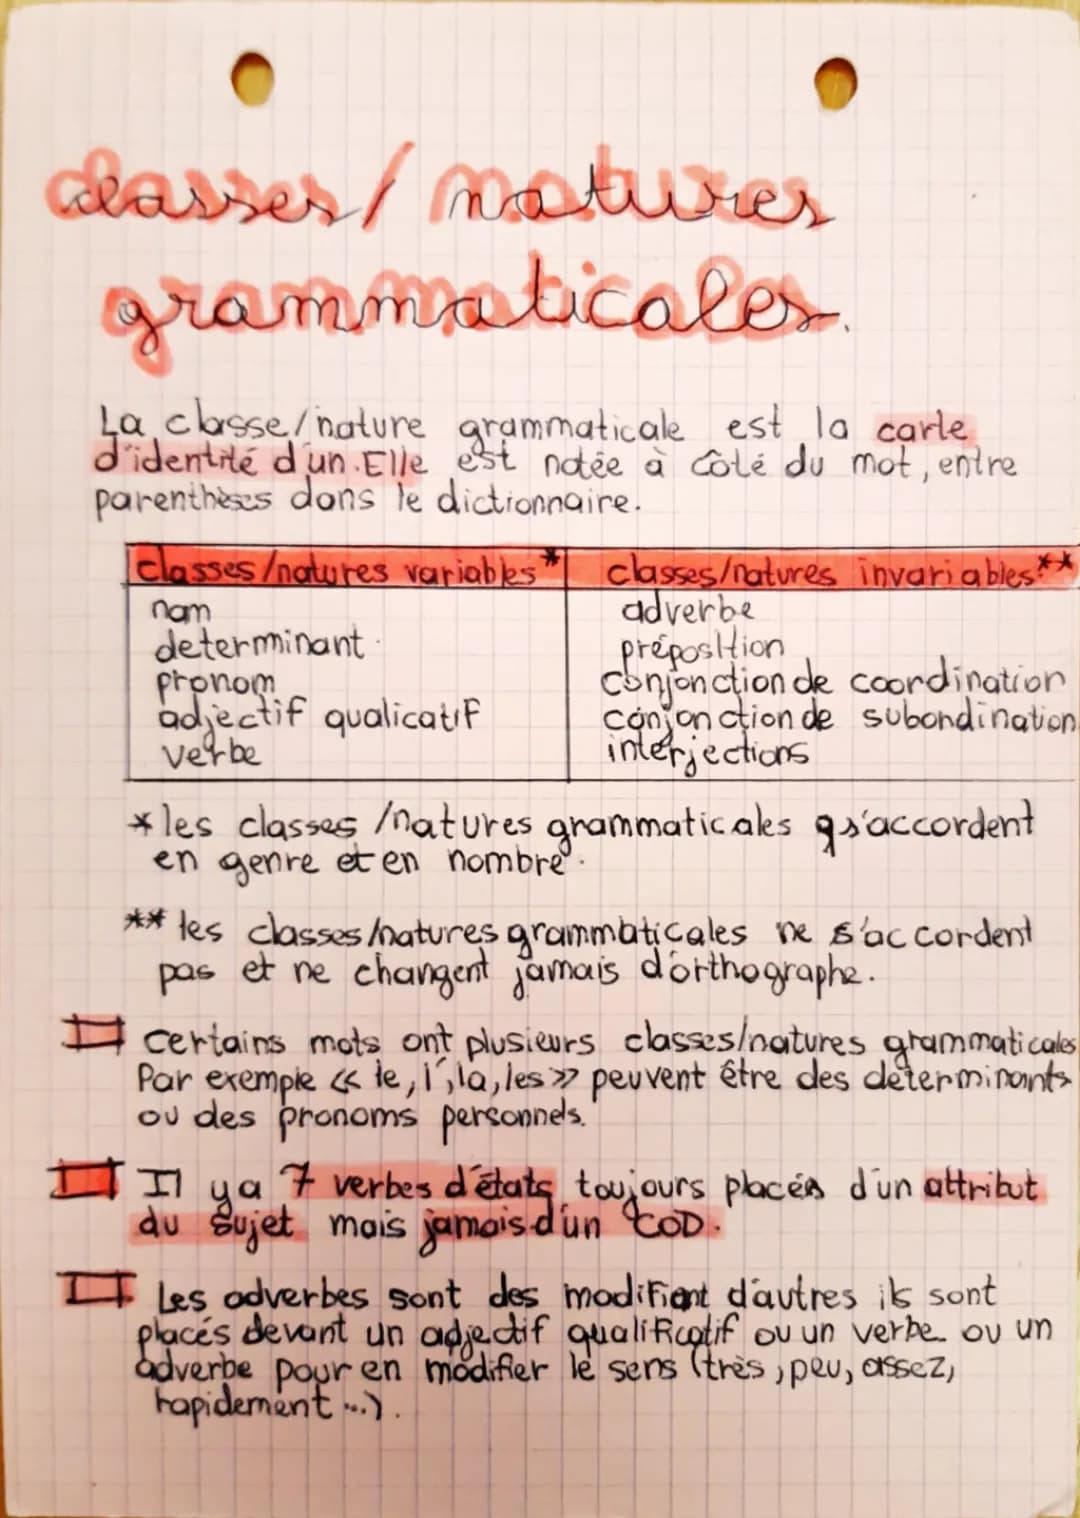 classes/ natures
grammaticales.
La classe/nature grammaticale est la carte
d'identité d'un. Elle est notée à côté du mot, entre
parenthèses dans le dictionnaire.
classes/natures variables* classes/natures invariables**
nom adverbe
determinant préposition
pronom conjonction de coordination
adjectif qualicatif conjonction de subondination
verbe interjections
* les classes /natures grammaticales qs'accordent
en genre et en nombre.
** les classes/natures grammaticales ne s'accordent
pas et ne changent jamais d'orthographe.
Certains mots ont plusieurs classes/natures grammaticales
Par exemple « le, l', la, les » peuvent être des determinants
ou des pronoms personnels.
Il y a 7 verbes d'états toujours placés d'un attribut
du sujet mais jamais d'un COD.
Les adverbes sont des modifient d'autres ils sont
placés devant un adjectif qualificatif ou un verbe ou un
adverbe pour en modifier le sens (très, peu, assez,
rapidement ...).